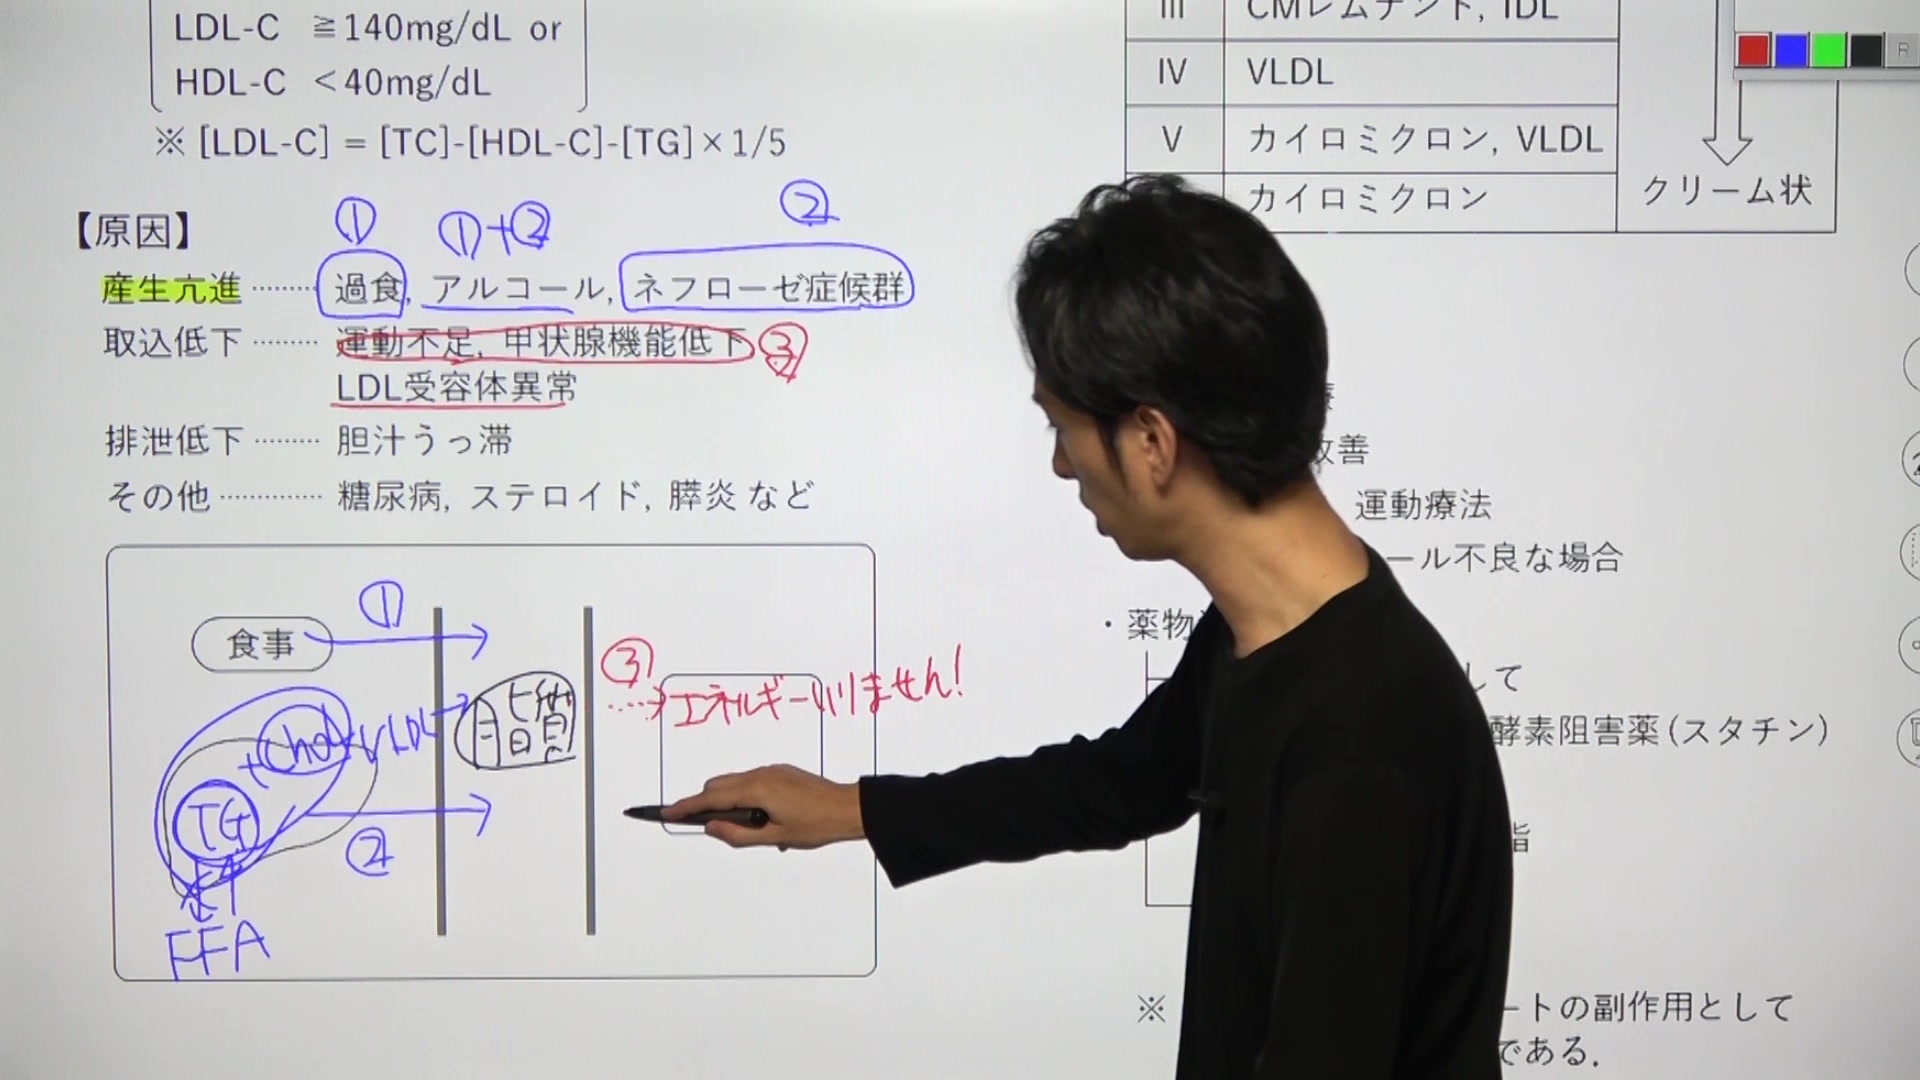 LDL-C ≧140mg/dL or
HDL-C <40mg/dL
※ [LDL-C] = [TC]-[HDL-C]-[TG]×1/5
① ①+② ②
【原因】
産生亢進 ……… 過食, アルコール, ネフローゼ症候群
取込低下 ……… 運動不足, 甲状腺機能低下 ③
LDL受容体異常
排泄低下 ……… 胆汁うっ滞
その他 ………… 糖尿病, ステロイド, 膵炎 など
①
食事
③
エネルギーいりません!
脂質
+chol VLDL
TG
②
FFA
III CMレムナント, IDL
IV VLDL
V カイロミクロン, VLDL
カイロミクロン
クリーム状
R
改善
運動療法
ール不良な場合
・薬物
して
酵素阻害薬(スタチン)
脂
※
ートの副作用として
である.